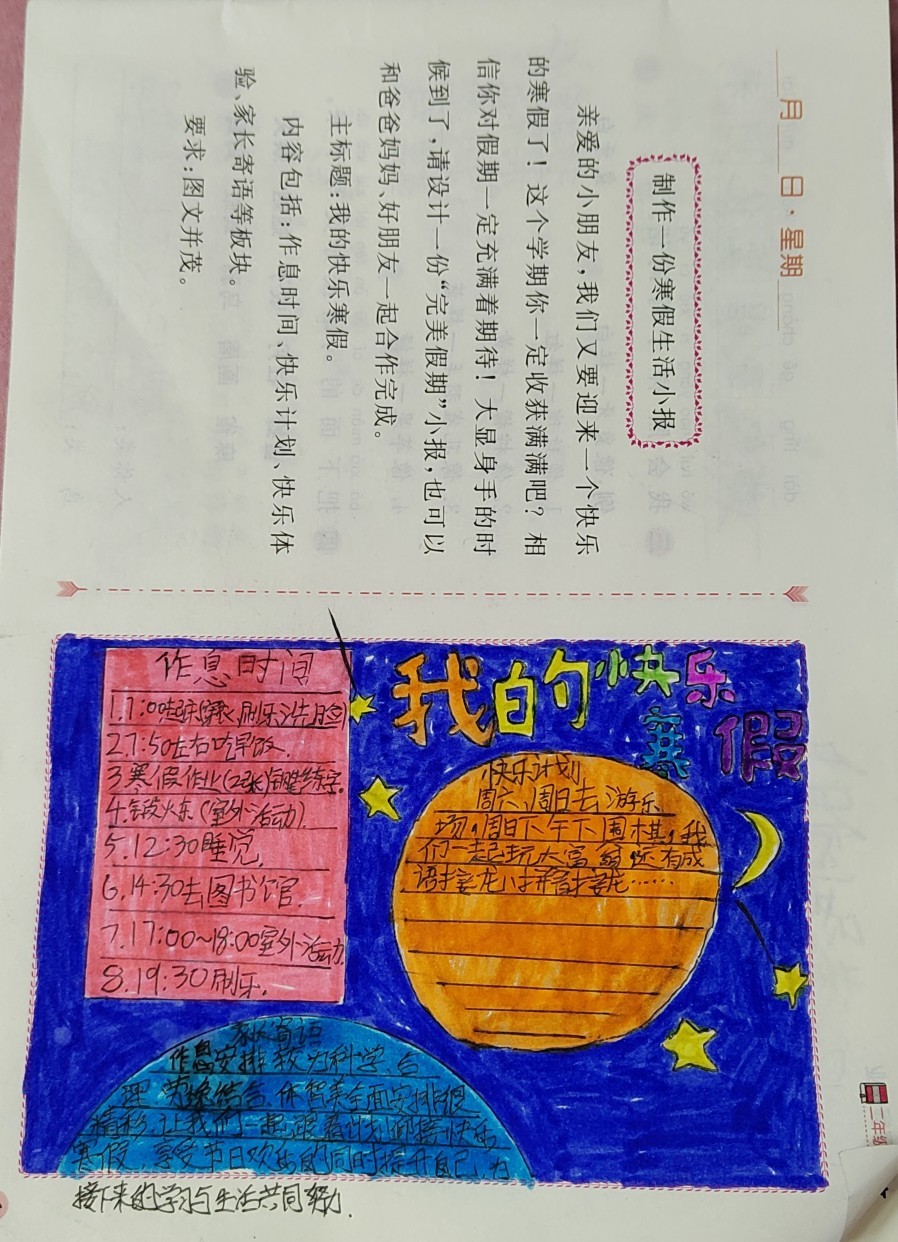 月 日·星期
制作一份寒假生活小报
亲爱的小朋友,我们又要迎来一个快乐
的寒假了!这个学期你一定收获满满吧?相
信你对假期一定充满着期待!大显身手的时
候到了,请设计一份“完美假期”小报,也可以
和爸爸妈妈、好朋友一起合作完成。
主标题:我的快乐寒假。
内容包括:作息时间、快乐计划、快乐体
验、家长寄语等板块。
要求:图文并茂。
我的快乐
寒假
作息时间
1.7:00起床穿衣刷牙洗脸
2.7:50左右吃早饭.
3.寒假作业(2张)
练字.
4.锻火东(室外活动).
5.12:30睡觉.
6.14:30去图书馆.
7.17:00~18:00室外活动.
8.19:30刷牙.
快乐计划
周六、周日去游乐
场,周日下午下围棋,我
们一起玩大富翁还有成
语接龙、拼音接龙……
家长寄语
作息安排较为科学、合
理 劳逸结合、体智美全面安排很
精彩,让我们一起跟着计划迎接快乐
寒假,享受节日欢乐的同时提升自己,为
接下来的学习与生活共同努力.
二年级